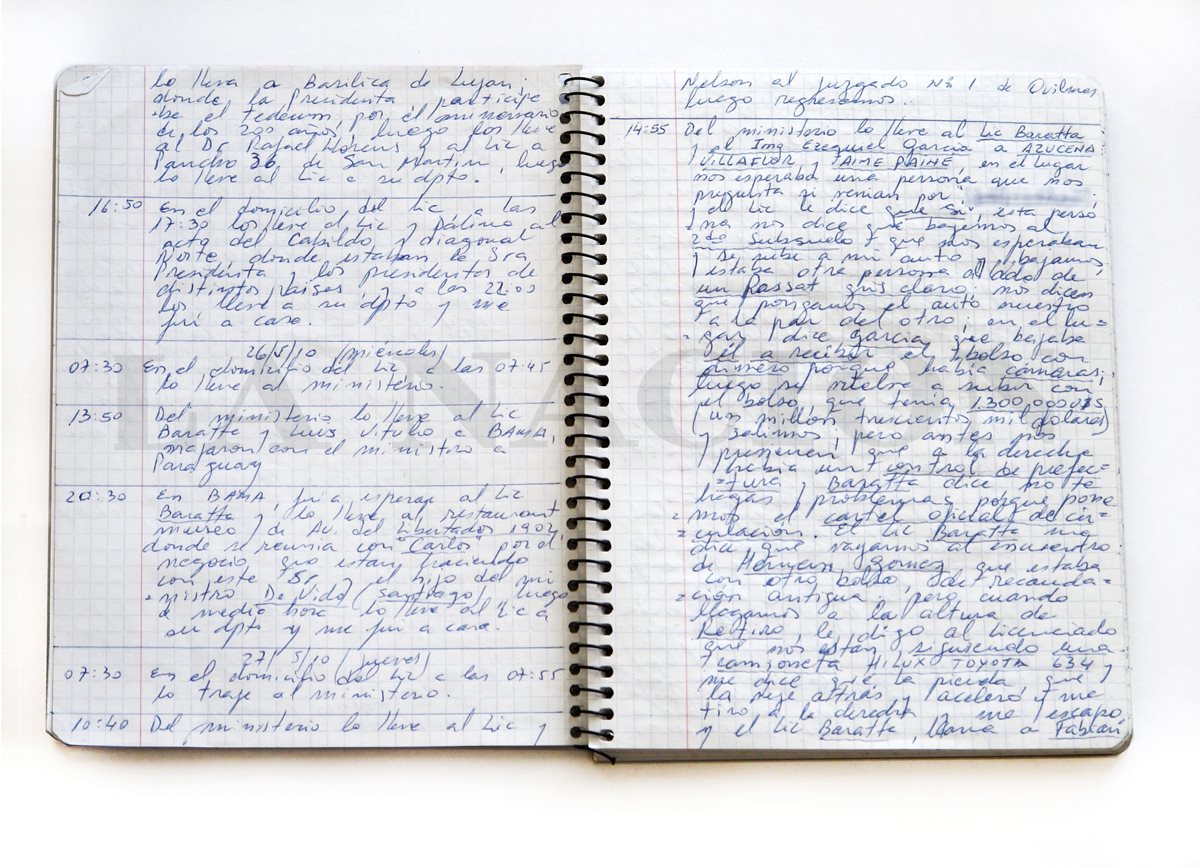 lo lleva a Basilica de Lujan,
donde la Presidenta, participe
de el tedeum, por el aniversario
de los 200 años, luego los lleve
al Dr Rafael Llorens y al Lic a
Pancho 36, de San Martin, luego
lo lleve al Lic a su dpto.
16:50 En el domicilio del Lic a las
17:30 los lleve el Lic y Pálino al
acto del Cabildo, y diagonal
Norte, donde estaban la Sra
Presidenta y los presidentes de
distintos paises y a las 22:00
los lleve a su dpto y me
fui a casa.
26/5/10 (miercoles)
07:30 En el domicilio del Lic a las 07:45
lo lleve al ministerio.
13:50 Del ministerio lo lleve al Lic
Baratta y Luis Vitulo a BAMA,
viajaron con el ministro a
Paraguay
20:30 En BAMA, fui a esperar al Lic
Baratta y lo lleve al restaurant
museo, de Av. del Libertador 1902
donde se reunia con "Carlos" por el
negocio que estan haciendo
con este Sr, y el hijo del mi
nistro De Vido (Santiago) luego
de media hora lo lleve al Lic a
su dpto y me fui a casa.
27/5/10 (jueves)
07:30 En el domicilio del Lic a las 07:55
lo traje al ministerio.
10:40 Del ministerio lo lleve al Lic y
Nelson al juzgado Nº 1 de Quilmes
luego regresamos.
14:55 Del ministerio lo lleve al Lic Baratta
y al Ing Ezequiel Garcia a AZUCENA
VILLAFLOR y JAIME PAINE, en el lugar
nos esperaba una persona que nos
pregunta si venian por
y el Lic le dice que Si, esta perso
na nos dice que bajemos al
2do Subsuelo y que nos esperaban
y se sube a mi auto y bajamos,
estaba otra persona al lado de
un Passat gris claro: nos dicen
que pongamos el auto nuestro
a la par del otro; en el lu-
gar, dice Garcia que bajaba
el a recibir el bolso con
dinero porque habia camaras;
luego se vuelve a subir con
el bolso que tenia 1.300.000U$S
(un millon trescientos mil dolares)
y salimos, pero antes nos
previenen que a la derecha
habia un control de prefec-
tura y Baratta dice no te
hagas problemas porque pone
mos el cartel oficial de cir
culacion. El Lic Baratta me
dice que vayamos al encuentro
de Hernan Gomez que estaba
con otro bolso de recauda-
cion antigua; pero cuando
llegamos a la altura de
Retiro, le digo al Licenciado
que nos estan siguiendo una
camioneta HILUX TOYOTA 634 y
me dice que la pierda que
la deje atras y acelero y me
tiro a la derecha y me escapo
y el Lic Baratta, llama a Fabian
LA NACION